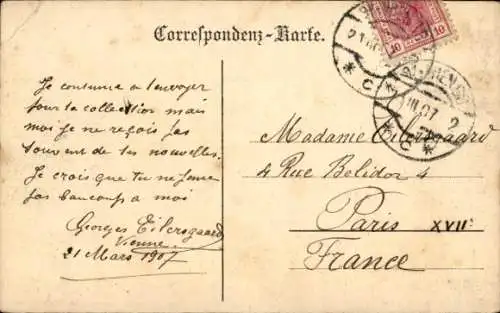 Correspondenz-Karte.
10 10
Je continue à t'envoyer
pour ta collection mais
moi je ne reçois pas
souvent de tes nouvelles.
Je crois que tu ne penses
pas beaucoup à moi
Georges Eilersgaard
Vienne
21 Mars 1907
Madame Eilersgaard
4 Rue Belidor 4
Paris XVIIe
France